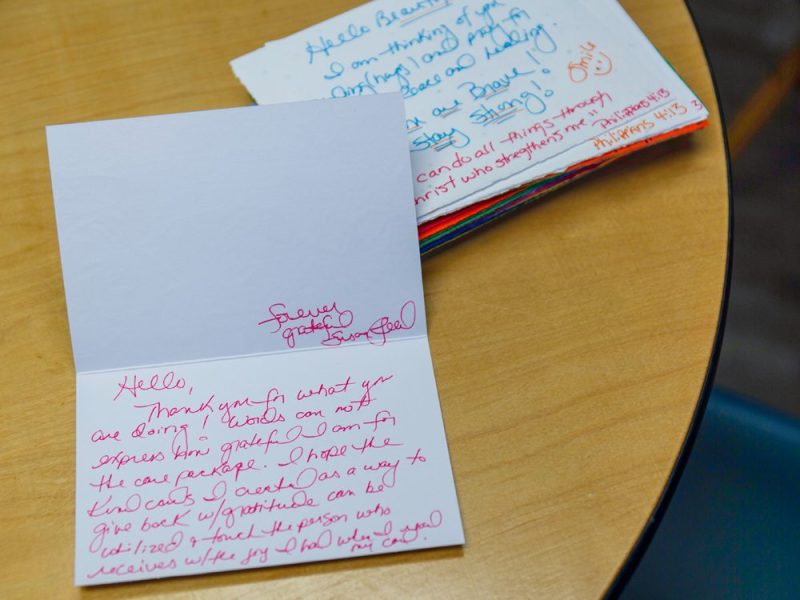 Hello Beautiful
I am thinking of you
(hugs) and pray for
peace and healing.
are Brave!
Stay Strong!
Smile
can do all things through
Christ who strengthens me"
Philippians 4:13
Philippians 4:13
3
forever
grateful
Susan
Hello,
Thank you for what you
are doing! Words can not
express how grateful I am for
the care package. I hope the
Kind cards I created as a way to
give back w/gratitude can be
utilized & touch the person who
receives w/the joy I had when I read
my card.